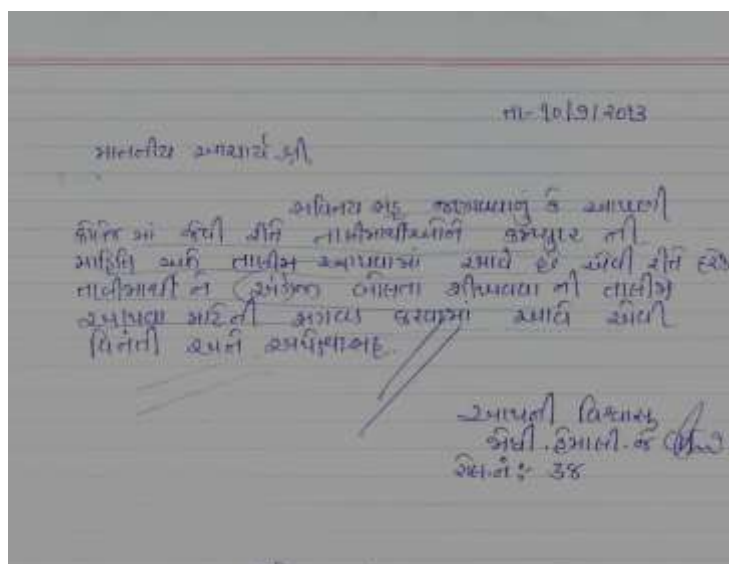 તા-૧૦/9/૨૦૧૩
માનનીય આચાર્ય શ્રી,
સવિનય સહ જણાવવાનું કે આપણી
કોલેજ માં જેવી રીતે તાલીમાર્થીઓને કમ્પ્યુટર ની
માહિતિ અને તાલીમ આપવામાં આવે છે એવી રીતે દરેક
તાલીમાર્થી ને અંગ્રેજી બોલતા શીખવવા ની તાલીમ
આપવા માટેની સગવડ કરવામાં આવે એવી
વિનંતી અને અપેક્ષાસહ.
આપની વિશ્વાસુ
જોષી. હેમાલી. જે
રોલ.નં :- ૩૪